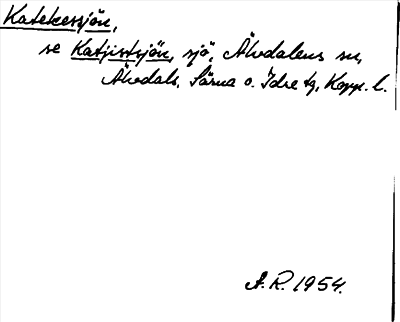 Katekessjön,
se Katjistsjön, sjö, Älvdalens sn,
Älvdals, Särna o. Idre tg, Kopp. l.
A.R. 1954.